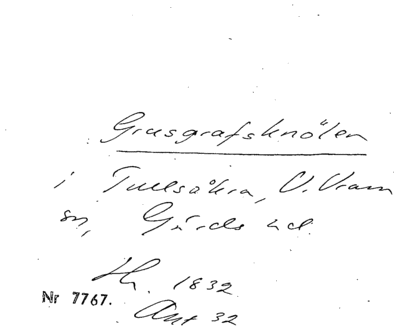 Grusgrafsknölen
i Tullsåkra, V. Vram
sn, Gärds hd.
Hr. 1832
Nr 7767.
Ant 32